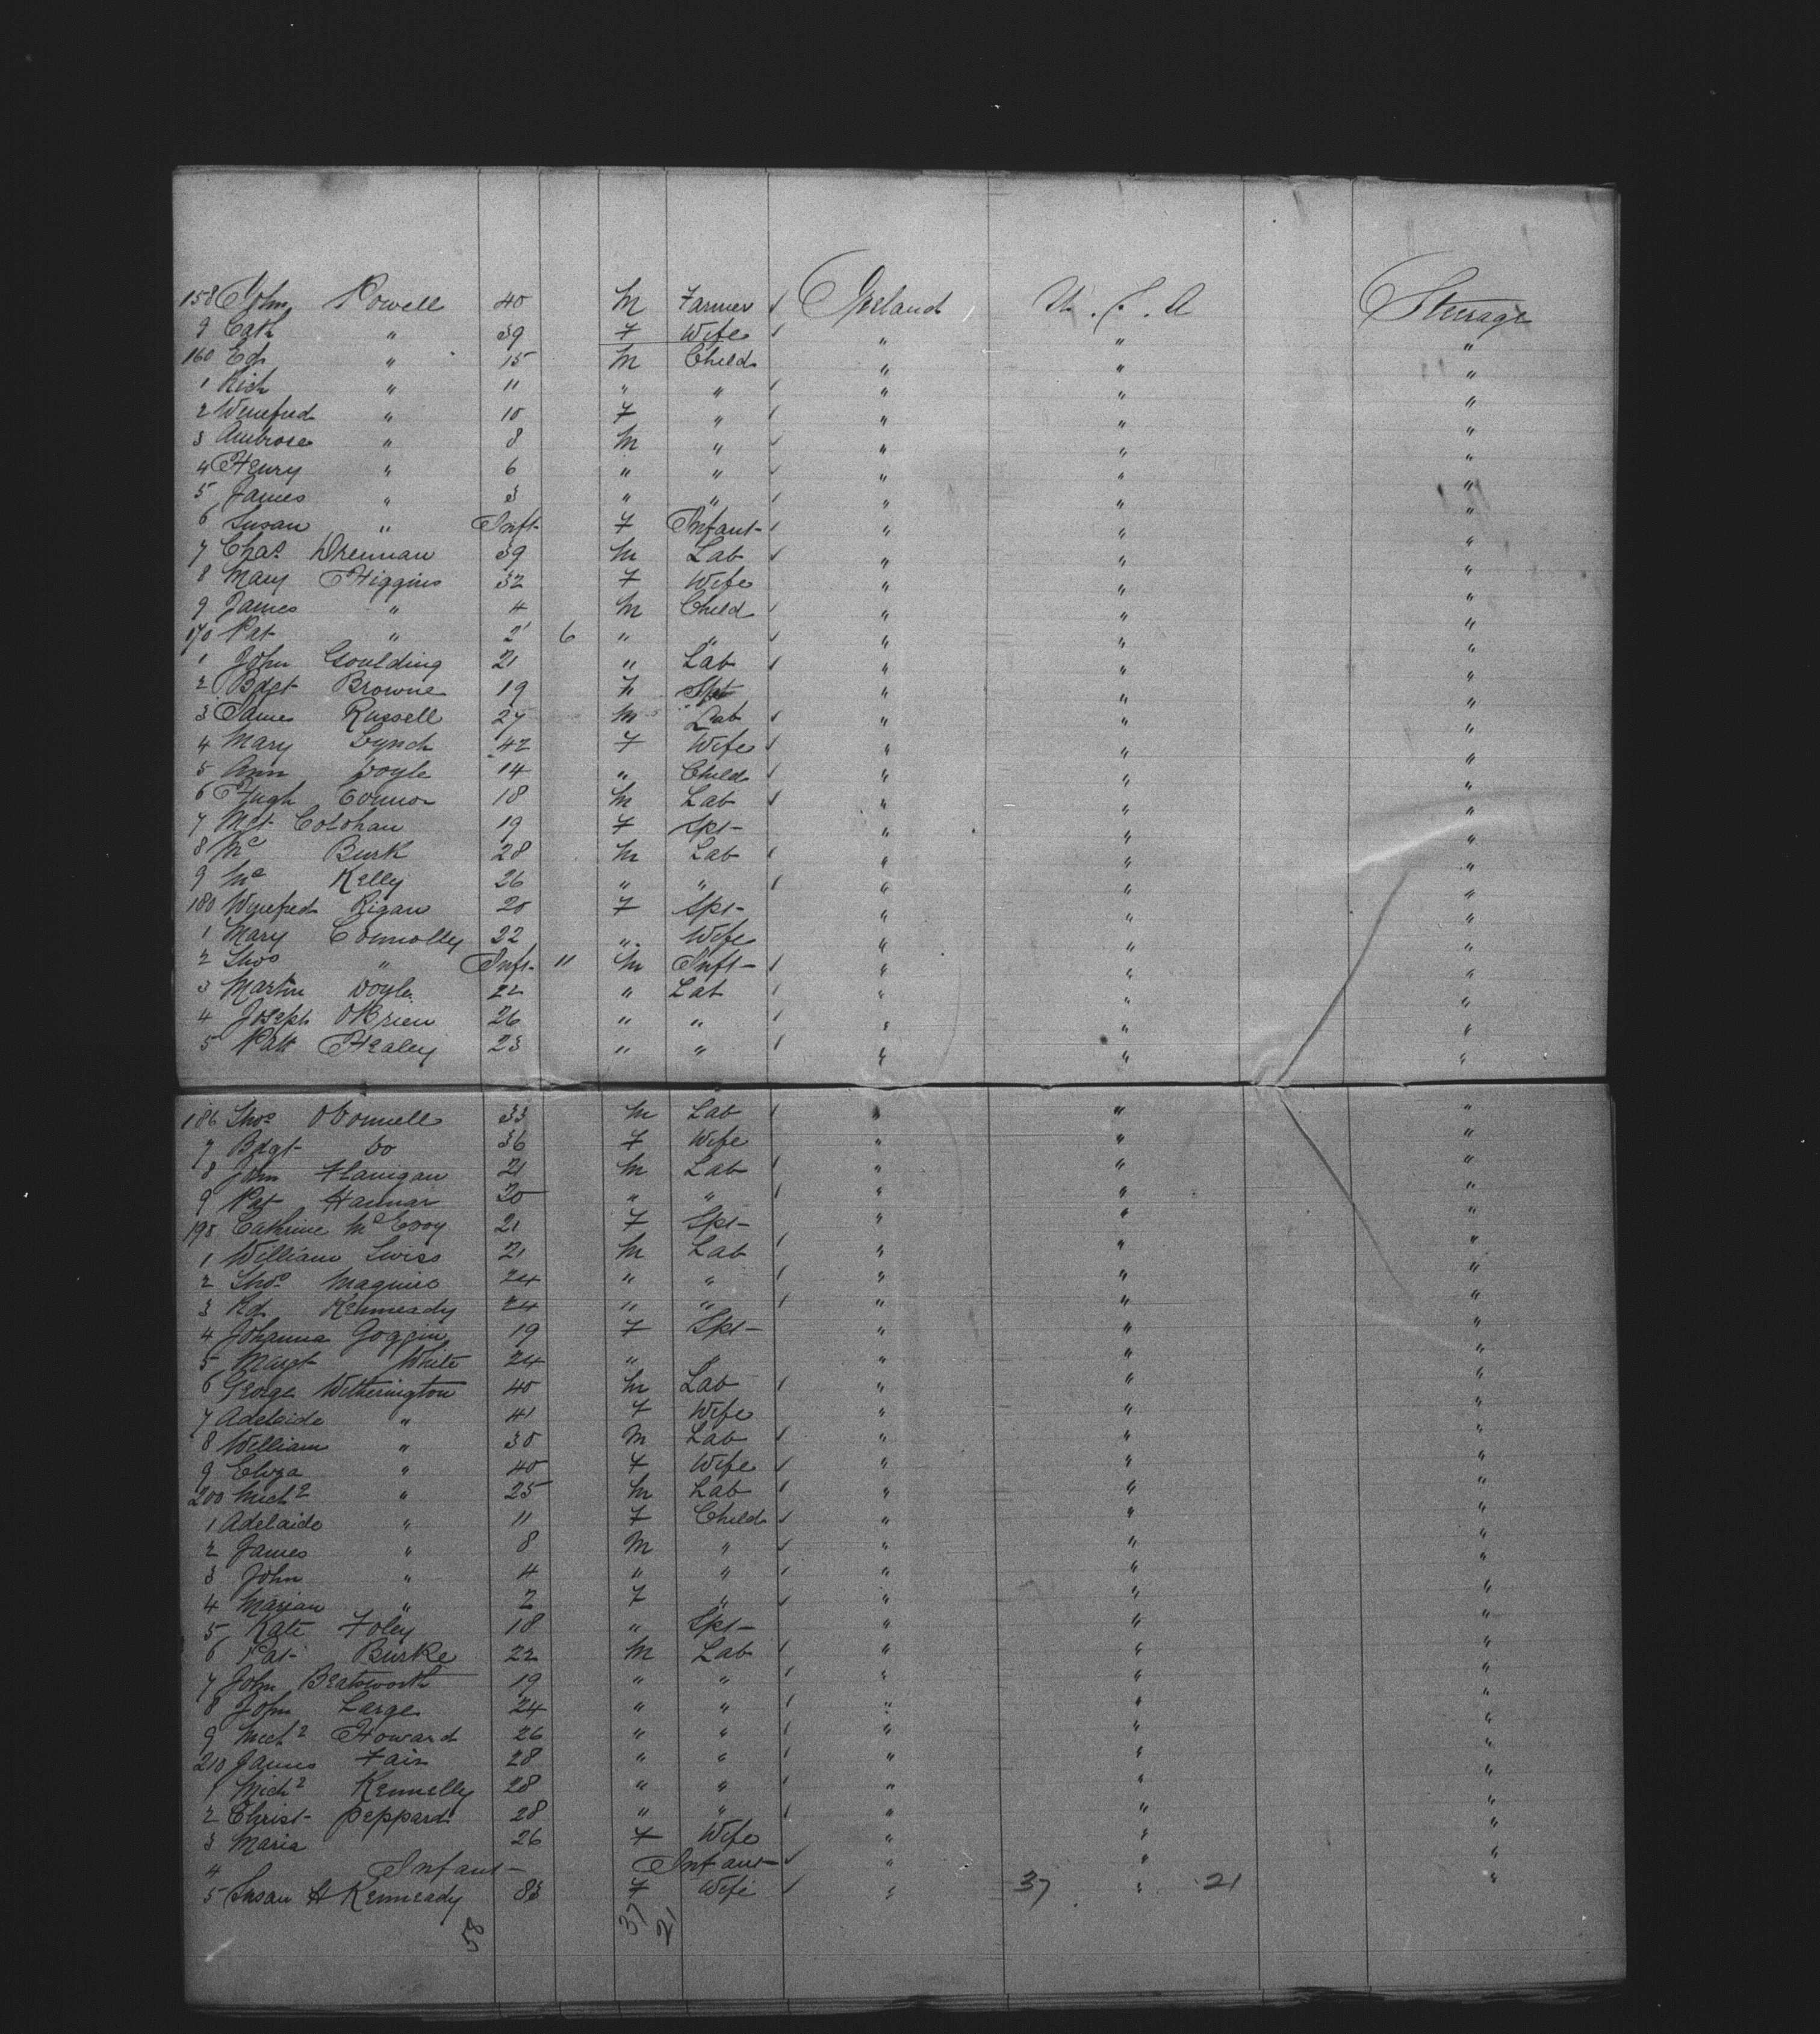 158 John Powell 40 M Farmer ✓ Ireland U.S.A Steerage
9 Cath " 39 F Wife ✓ " " "
160 Ed " 15 M Child " " "
1 Rich " 11 " " ✓ " " "
2 Winefred " 10 F " ✓ " " "
3 Ambrose " 8 M " ✓ " " "
4 Henry " 6 " " ✓ " " "
5 James " 3 " " ✓ " " "
6 Susan " Inft- F Infant- ✓ " " "
7 Chas Drennan 39 M Lab ✓ " " "
8 Mary Higgins 32 F Wife " " "
9 James " 4 M Child ✓ " " "
170 Pat " 2 6 " " ✓ " " "
1 John Goulding 21 " Lab ✓ " " "
2 Bdgt Browne 19 F Spt " " "
3 James Russell 27 M Lab ✓ " " "
4 Mary Lynch 42 F Wife ✓ " " "
5 Ann Doyle 14 " Child ✓ " " "
6 Hugh Connor 18 M Lab ✓ " " "
7 Mgt Colohan 19 F Spt- " " "
8 Mc Burk 28 M Lab ✓ " " "
9 Mc Kelly 26 " " ✓ " " "
180 Winefred Rigan 20 F Spt- " " "
1 Mary Connolly 22 " Wife " " "
2 Thos " Inft- 11 M Inft- ✓ " " "
3 Martin Doyle 22 " Lab ✓ " " "
4 Joseph OBrien 26 " " ✓ " " "
5 Patt Healey 23 " " ✓ " " "
186 Thos OConnell 33 M Lab ✓ " " "
7 Bdgt Do 36 F Wife " " "
8 John Flanigan 21 M Lab ✓ " " "
9 Pat Hannar 30 " " ✓ " " "
190 Cathrine McEvoy 21 F Spt- " " "
1 William Swiss 21 M Lab ✓ " " "
2 Thos Maguire 24 " " ✓ " " "
3 Rd Kenneady 24 " " ✓ " " "
4 Johanna Goggin 19 F Spt- " " "
5 Margt White 24 " " " " "
6 George Witherington 40 M Lab ✓ " " "
7 Adelaide " 41 F Wife " " "
8 William " 30 M Lab ✓ " " "
9 Eliza " 40 F Wife ✓ " " "
200 Michl " 25 M Lab ✓ " " "
1 Adelaide " 11 F Child ✓ " " "
2 James " 8 M " ✓ " " "
3 John " 4 " " ✓ " " "
4 Marian " 2 F " ✓ " " "
5 Kate Foley 18 " Spt- " " "
6 Pat- Burke 22 M Lab ✓ " " "
7 John Beatsworth 19 " " ✓ " " "
8 John Large 24 " " ✓ " " "
9 Michl Howard 26 " " ✓ " " "
210 James Fair 28 " " ✓ " " "
1 Michl Kennelly 28 " " ✓ " " "
2 Christ- Peppard 28 " " ✓ " " "
3 Maria 26 F Wife " " "
4 Infant- Infant- ✓ " " "
5 Susan H Kenneady 83 F Wife ✓ " 37 " 21 "
58 37 21